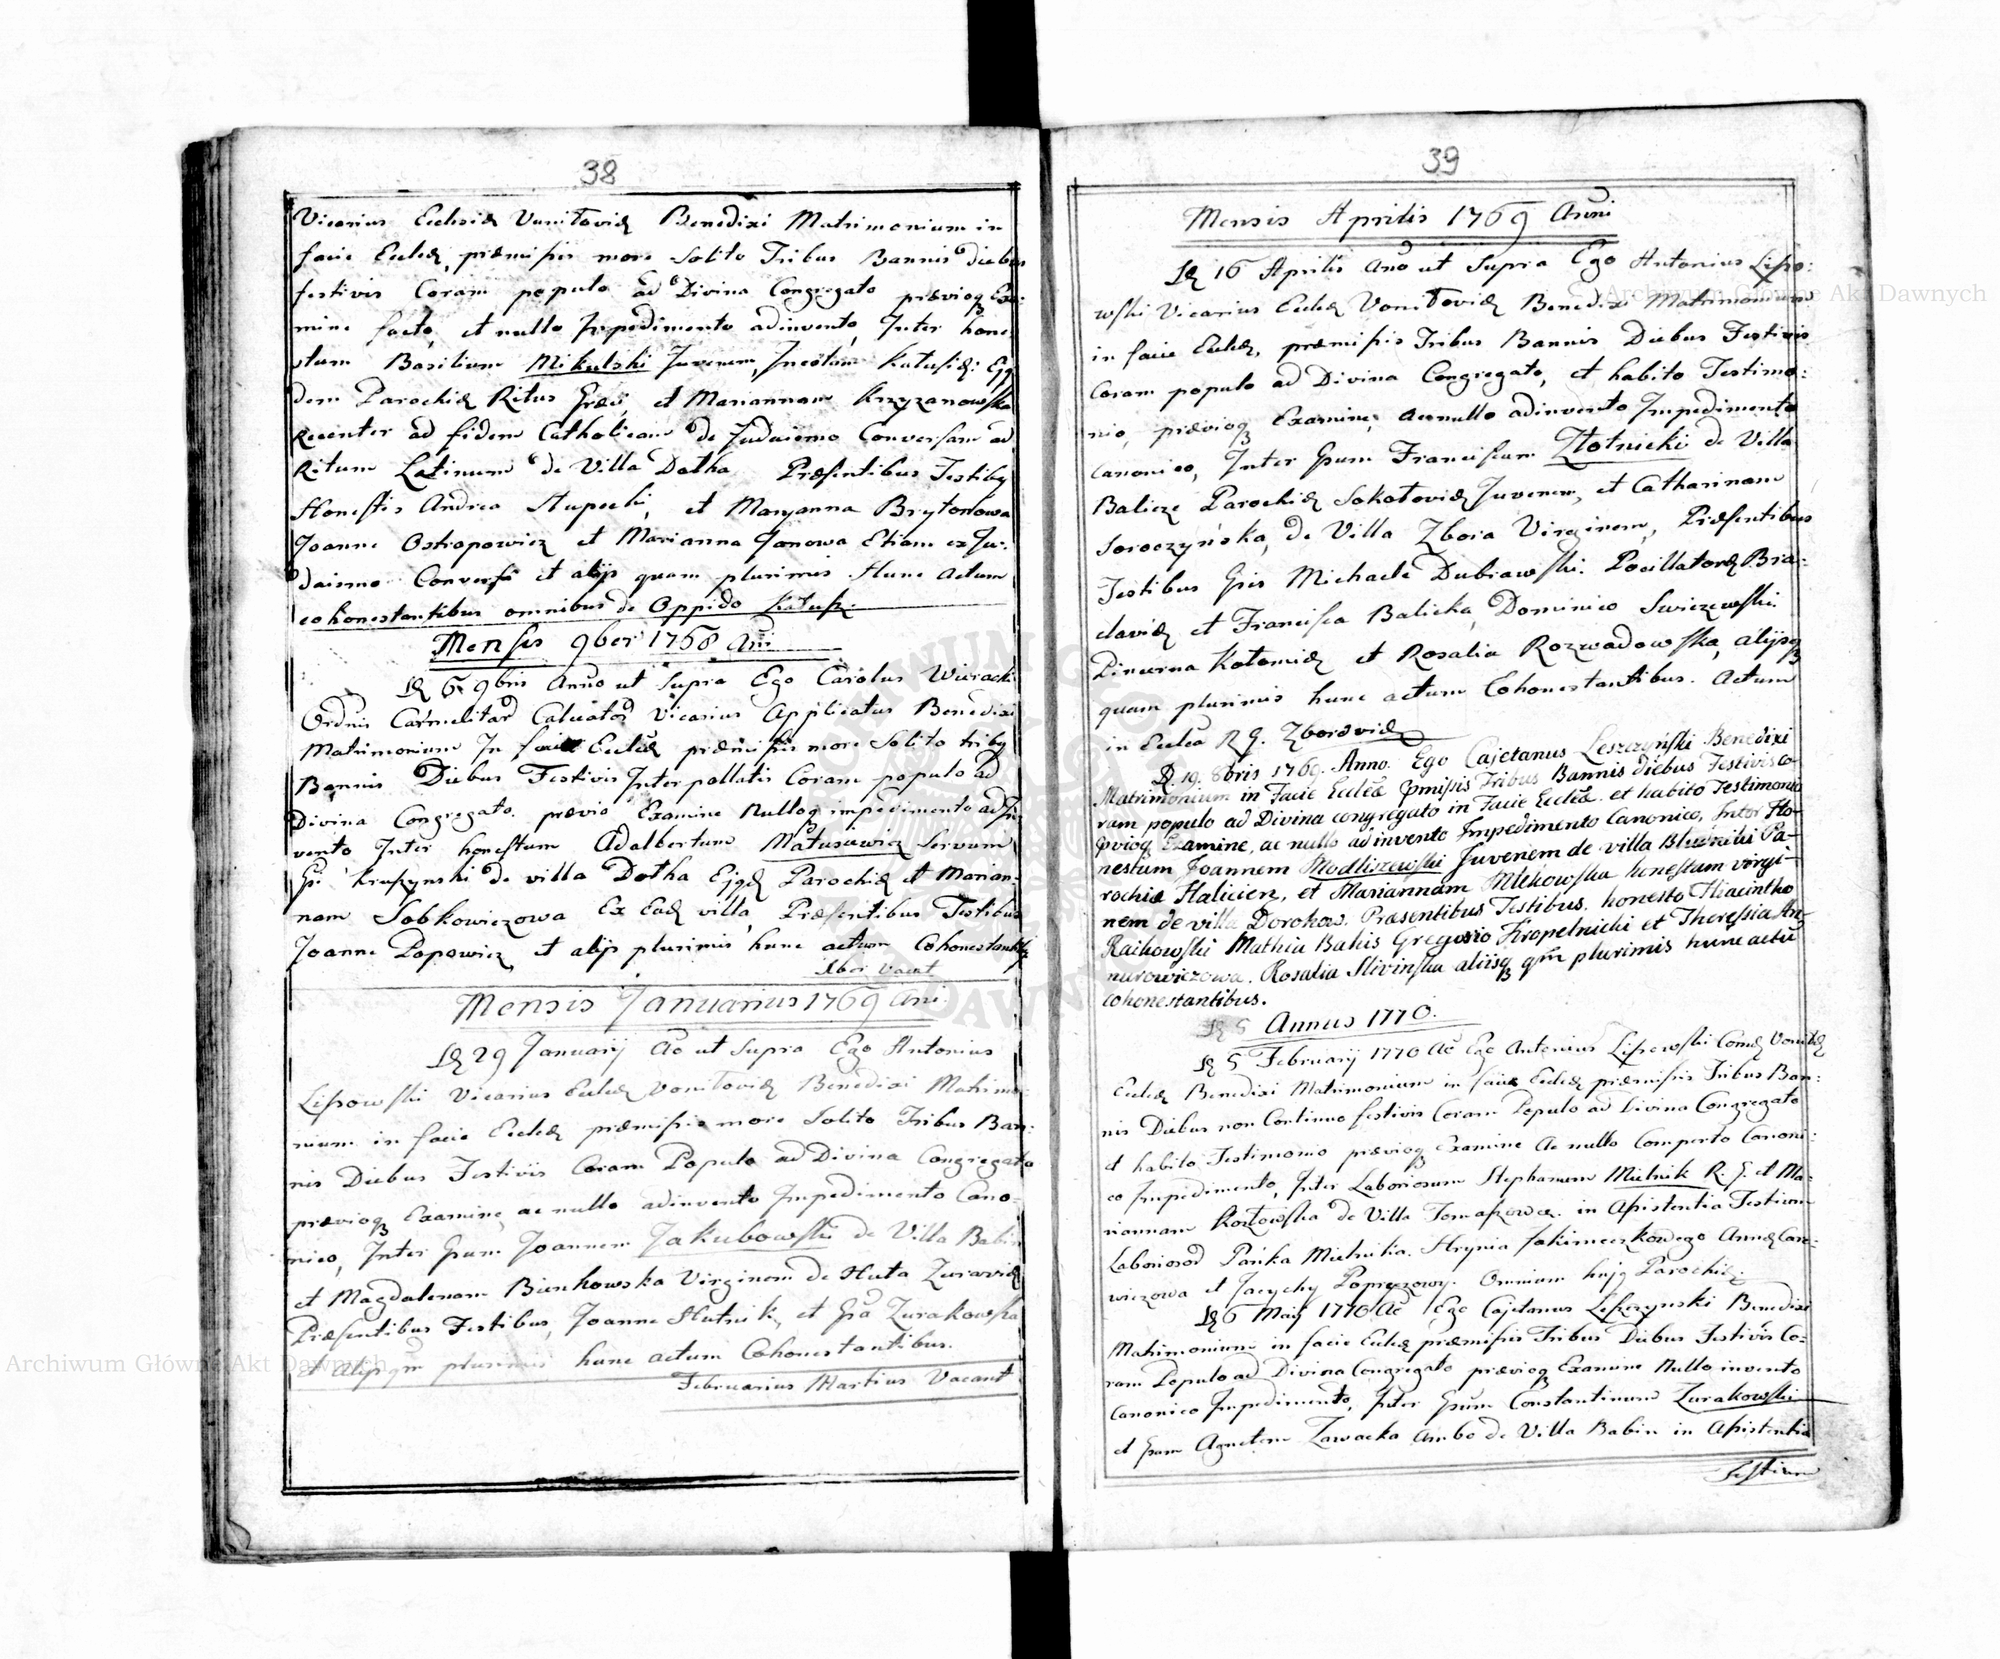 38
Vicarius Ecclesiæ Voniłoviæ Benedixi Matrimonium in
facie Eccleæ, præmissis more Solito Tribus Bannis diebus
festivis Coram populo ad Divina Congregato prævioq Exa:
mine facto, et nullo Impedimento adinvento, Inter hone
stum Basilium Mikulski Juvenem, Incolam Kałusiæ: Ejq
dem Parochiæ Ritus Græci, et Mariannam Krzyzanowska
Recenter ad fidem Catholicam de Judaismo Conversam ad
Ritum Latinum de Villa Dołha Præsentibus Testibq
Honestis Andrea Słupecki, et Maryanna Brytonowa
Joanne Ostrapowicz et Marianna Janowa Etiam ex Ju:
daismo Conversa et alijs quam plurimis Hunc Actum
cohonestantibus omnibus de Oppido Kałusz.
Mensis 9ber 1768 Ani
Dię 6 9bris Anno ut Supra Ego Carolus Wieracki
Ordnis Carmelitar Calceator Vicarius Applicatus Benedixi
Matrimonium In facie Eccleæ præmissis more Solito tribq
Bannis Diebus Festivis Interpollatis Coram populo ad
Divina Congregato. prævio Examine Nulloq impedimento ad In
vento Inter honestum Adalbertum Matusiewicz Servum
Gsi Kruszynski de villa Dołha Ejqdę Parochiæ et Marian:
nam Sobkowiczowa Ex Eadę villa, Præsentibus Testibus
Joanne Popowicz, et alijs plurimis hunc actum Cohonestantibq
Xber vacat
Mensis Januarius 1769 Ani
Dię 29 Januarij Ao ut Supra Ego Antonius
Lipowski Vicarius Eccleæ Voniłoviæ Benedixi Matrimo:
nium in facie Eccleæ præmissis more Solito Tribus Ban:
nis Diebus Festivis Coram Populo ad Divina Congregato
prævioq Examine, ac nullo adinvento Impedimento Cano:
nico, Inter Gsum Joannem Jakubowski de Villa Babin
et Magdalenam Bienkowska Virginem de Huta Zuraviæ
Præsentibus Testibus, Joanne Hutnik, et Gsa Zurakowska
et Alijs qm plurimis hunc actum Cohonestantibus.
Februarius Martius Vacant
39
Mensis Aprilis 1769 Anni
Dię 16 Aprilis Ano ut Supra Ego Antonius Lipo:
wski Vicarius Eccleæ Voniłoviæ Benedixi Matrimonium
in facie Eccleæ, præmissis Tribus Bannis Diebus Festivis
Coram populo ad Divina Congregato, et habito Testimo:
nio, prævioq Examine, ac nullo adinvento Impedimento
Canonico, Inter Gsum Franciscum Złotnicki de Villa
Balicze Parochiæ Sokołoviæ Juvenem, et Catharinam
Soroczyńska, de Villa Zbora Virginem, Præsentibus
Testibus Gsis Michaele Dubrawski Pocillatoræ Bra:
claviæ et Francisca Balicka, Dominico Swiezewski
Pincerna Kołomiæ et Rosalia Rozwadowska, alijsq
quam plurimis hunc actum Cohonestantibus. Actum
in Ecclea R G. Zboraviæ
Dę 19. 8bris 1769. Anno. Ego Cajetanus Leszczyński Benedixi
Matrimonium in Facie Eccleæ pmissis Tribus Bannis diebus Festivis co-
ram populo ad Divina congregato in Facie Eccleæ. et habito Testimonio
pvioq Examine, ac nullo adinvento Impedimento Canonico, Inter Ho-
nestum Joannem Modliszewski Juvenem de villa Bludniki Pa-
rochiæ Halicien, et Mariannam Mlekowska honestam virgi-
nem de villa Dorohow. Præsentibus Testibus. honesto Hiacintho
Raikowski Mathia Bahis Gregorio Kropelnicki et Theressia An-
nurowiczowa. Rosalia Slivinska aliisq qm plurimis hunc actu
cohonestantibus.
Annus 1770.
Dię 5 Februarij 1770 Ao Ego Antonius Lipowski Comę Voniłę
Eccleæ Benedixi Matrimonium in facie Eccleæ præmissis Tribus Ban:
nis Diebus non Continuo festivis Coram Populo ad Divina Congregato
et habito Testimonio prævioq Examine Ac nullo Comperto Canoni:
co Impedimento, Inter Laboriosum Stephanum Mielnik R. G. et Ma:
riannam Kozłowska de Villa Tomaszowce. in Assistentia Testium
Laboriosor Pańka Mielnika. Hrynia Jakimeczkowego Annæ Care:
wiczowa et Jacychy Popryzowy. Omnium hujq Parochiæ.
Dię 6 Maij 1770 Ao Ego Cajetanus Leszczynski Benedixi
Matrimonium in facie Eccleæ præmissis Tribus Diebus Festivis Co:
ram Populo ad Divina Congregato prævioq Examine Nullo invento
Canonico Impedimento, Inter Gsum Constantinum Zurakowski
et Gsam Agnetem Zawacka Ambo de Villa Babin in Assistentia
Testium
Archiwum Główne Akt Dawnych
Archiwum Główne Akt Dawnych